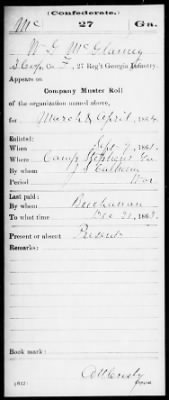 (Confederate.)
Mc 27 Ga.
W. G. McGlamry
Co. F, 27 Reg't Georgia Infantry.
Appears on
Company Muster Roll
of the organization named above,
for March & April, 1864.
Enlisted:
When Sept 9, 1861.
Where Camp Stephens Ga
By whom J. S. Calhoun
Period War
Last paid:
By whom Buchanan
To what time Dec 31, 1863.
Present or absent Present
Remarks:
Book mark:
(642)
Copyist.